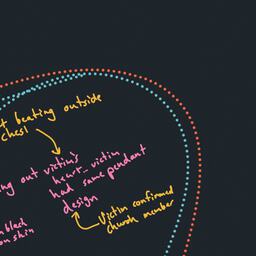 beating outside
chest
ng out victim's
heart, victim
had same pendant
design
Victim confirmed
church member
black
on skin